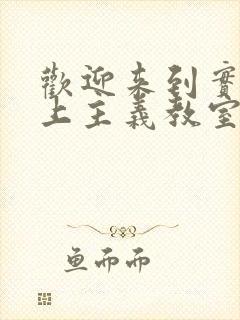 歡迎来到實
上主義教室
鱼而而